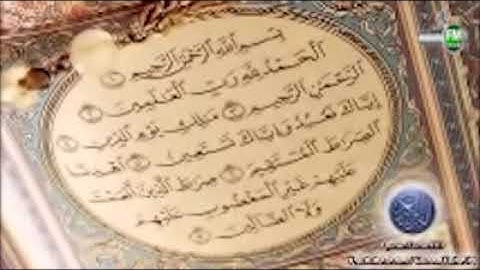 بِسْمِ اللَّهِ الرَّحْمَٰنِ الرَّحِيمِ ١
الْحَمْدُ لِلَّهِ رَبِّ الْعَالَمِينَ ٢
الرَّحْمَٰنِ الرَّحِيمِ ٣ مَالِكِ يَوْمِ الدِّينِ ٤
إِيَّاكَ نَعْبُدُ وَإِيَّاكَ نَسْتَعِينُ ٥ اهْدِنَا
الصِّرَاطَ الْمُسْتَقِيمَ ٦ صِرَاطَ الَّذِينَ أَنْعَمْتَ
عَلَيْهِمْ غَيْرِ الْمَغْضُوبِ عَلَيْهِمْ
وَلَا الضَّالِّينَ ٧
FM